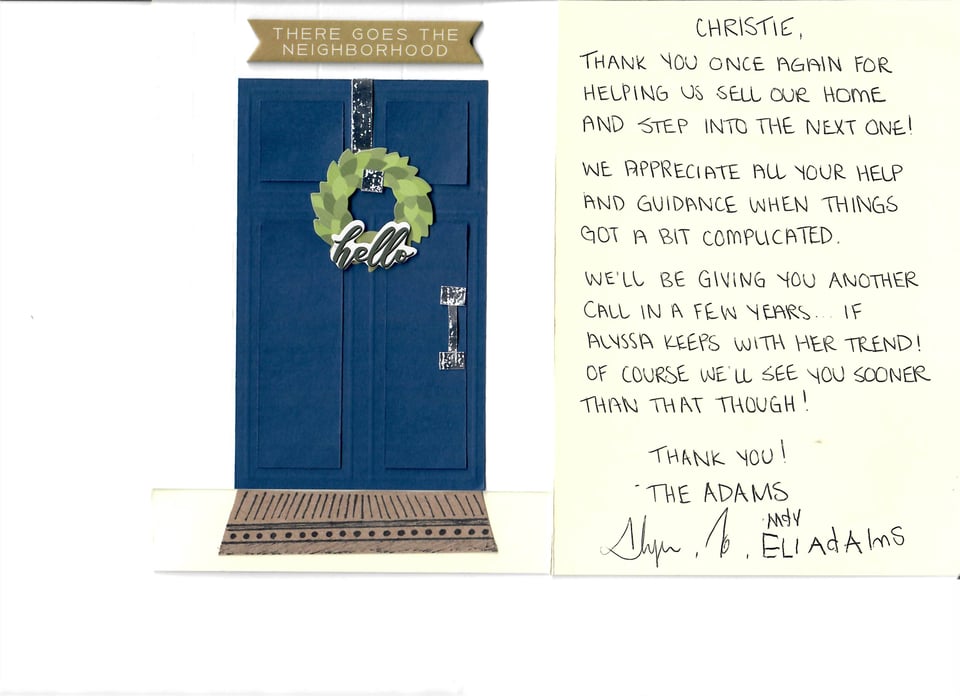 THERE GOES THE
NEIGHBORHOOD
hello
CHRISTIE,
THANK YOU ONCE AGAIN FOR
HELPING US SELL OUR HOME
AND STEP INTO THE NEXT ONE!
WE APPRECIATE ALL YOUR HELP
AND GUIDANCE WHEN THINGS
GOT A BIT COMPLICATED.
WE'LL BE GIVING YOU ANOTHER
CALL IN A FEW YEARS... IF
ALYSSA KEEPS WITH HER TREND!
OF COURSE WE'LL SEE YOU SOONER
THAN THAT THOUGH!
THANK YOU!
THE ADAMS
ELI AdAmS